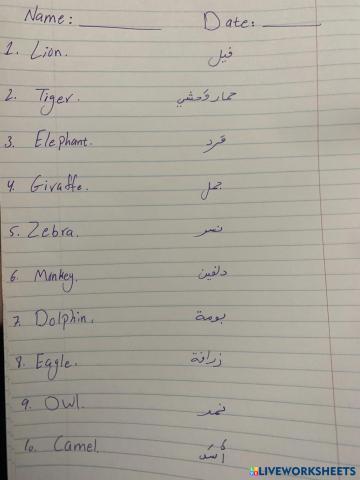 Name: ________ Date: ________
1. Lion. فيل
2. Tiger. حمار وَحشي
3. Elephant. قرد
4. Giraffe. جمل
5. Zebra. نسر
6. Monkey. دلفين
7. Dolphin. بومة
8. Eagle. زرافة
9. Owl. نمر
10. Camel. أَسَد
LIVEWORKSHEETS